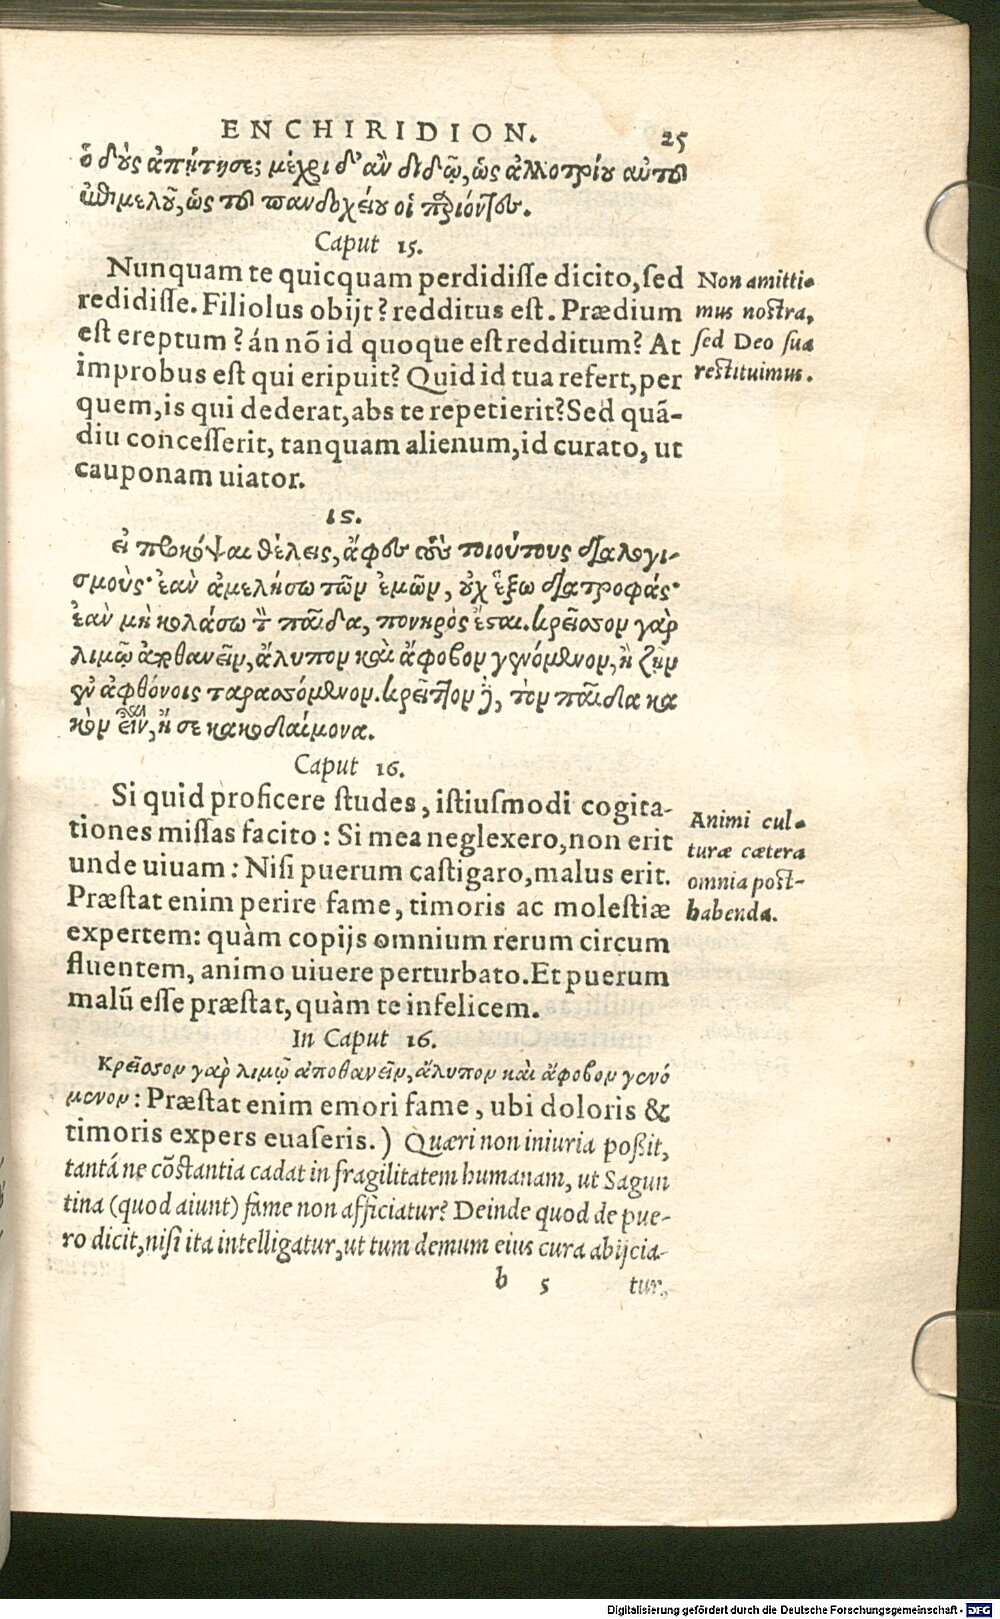 ENCHIRIDION. 25
ὁ δούς ἀπῄτησε; μέχρι δ' ἂν διδῷ, ὡς ἀλλοτρίου αὐτοῦ
ἐπιμελοῦ, ὡς τοῦ πανδοχείου οἱ παριόντες.
Caput 15.
Nunquam te quicquam perdidiſſe dicito, ſed
redidiſſe. Filiolus obijt? redditus eſt. Prædium
eſt ereptum? án nõ id quoque eſt redditum? At
improbus eſt qui eripuit? Quid id tua refert, per
quem, is qui dederat, abs te repetierit? Sed quã-
diu conceſſerit, tanquam alienum, id curato, ut
cauponam uiator.
Non amitti-
mus noſtra,
ſed Deo ſua
reſtituimus.
15.
εἰ προκόψαι θέλεις, ἄφες τοὺς τοιούτους διαλογι-
σμούς· ἐὰν ἀμελήσω τῶν ἐμῶν, οὐχ ἕξω διατροφάς·
ἐὰν μὴ κολάσω τὸν παῖδα, πονηρὸς ἔσται. κρεῖσσον γὰρ
λιμῷ ἀποθανεῖν, ἄλυπον καὶ ἄφοβον γενόμενον, ἢ ζῆν
ἐν ἀφθόνοις ταρασσόμενον. κρεῖττον δὲ, τὸν παῖδα κα
κὸν εἶναι, ἢ σε κακοδαίμονα.
Caput 16.
Si quid proficere ſtudes, iſtiuſmodi cogita-
tiones miſſas facito: Si mea neglexero, non erit
unde uiuam: Niſi puerum caſtigaro, malus erit.
Præſtat enim perire fame, timoris ac moleſtiæ
expertem: quàm copijs omnium rerum circum
fluentem, animo uiuere perturbato. Et puerum
malũ eſſe præſtat, quàm te infelicem.
Animi cul-
turæ cætera
omnia poſt-
habenda.
In Caput 16.
Κρεῖσσον γὰρ λιμῷ ἀποθανεῖν, ἄλυπον καὶ ἄφοβον γενό
μενον: Præſtat enim emori fame, ubi doloris &
timoris expers euaſeris.) Quæri non iniuria poßit,
tantá ne cõſtantia cadat in fragilitatem humanam, ut Sagun
tina (quod aiunt) fame non afficiatur? Deinde quod de pue-
ro dicit, niſi ita intelligatur, ut tum demum eius cura abijcia-
b 5 tur,
Digitalisierung gefördert durch die Deutsche Forschungsgemeinschaft - DFG